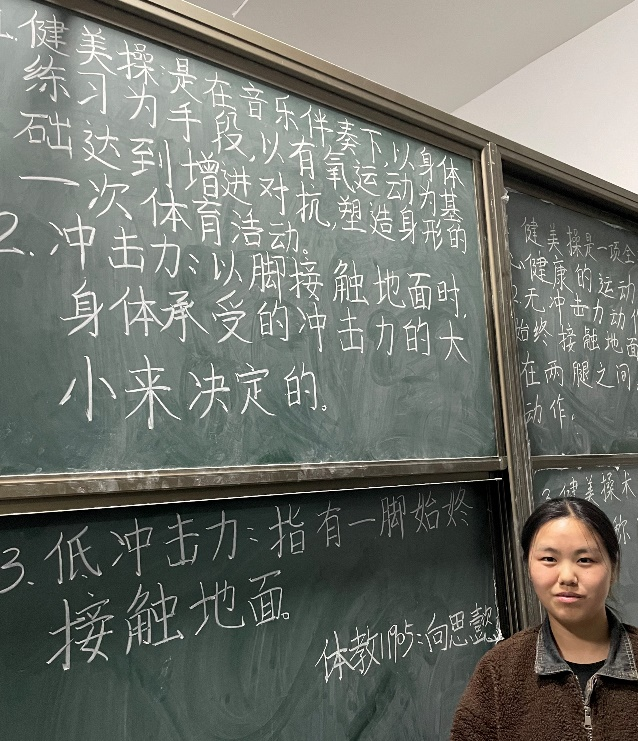 1.健美操是在音乐伴奏下,以身体
练习为手段,以有氧运动为基
础达到增进对抗,塑造身形的
一次体育活动。
2.冲击力:以脚接触地面时,
身体承受的冲击力的大
小来决定的。
3.低冲击力:指有一脚始终
接触地面。
体教1905:向思懿
健美操是一项全
心健康的运动
2.无冲击力动作
始终接触地面
在两腿之间
动作.
3.健美操术
称